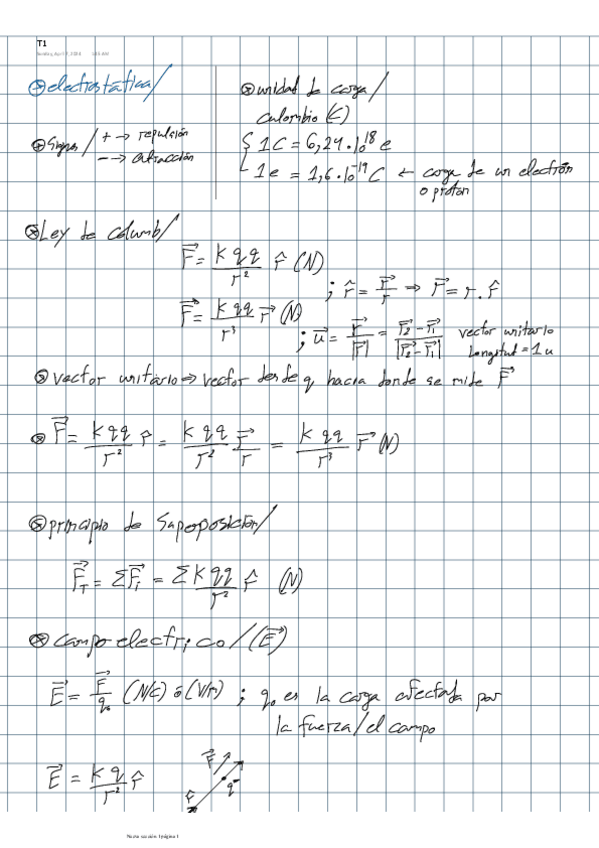 T1
Sunday, April 7, 2024
⊗ electrostática/
⊗ signos/ + → repulsión
− → atracción
⊗ unidad de carga/
culombio (C)
{ 1C = 6,24·10¹⁸ e
1e = 1,6·10⁻¹⁹ C ← carga de un electrón
o proton
⊗ Ley de columb/
F⃗ = K q q / r² r̂ (N)
; r̂ = r⃗ / r ⇒ r⃗ = r · r̂
F⃗ = K q q / r³ r⃗ (N)
; u⃗ = r⃗ / |r⃗| = r⃗₂ − r⃗₁ / |r⃗₂ − r⃗₁| vector unitario
Longitud = 1 u
⊗ vector unitario ⇒ vector desde q hacia donde se mide F⃗
⊗ F⃗ = K q q / r² r̂ = K q q / r² r⃗ / r = K q q / r³ r⃗ (N)
⊗ principio de Saposición/
F⃗T = ΣF⃗i = Σ K q q / r² r̂ (N)
⊗ campo electrico/(E⃗)
E⃗ = F⃗ / q₀ (N/C) ó (V/m) ; q₀ es la carga afectada por
la fuerza/el campo
E⃗ = K q / r² r̂
F⃗
q
r̂
Nueva sección 1 página 1